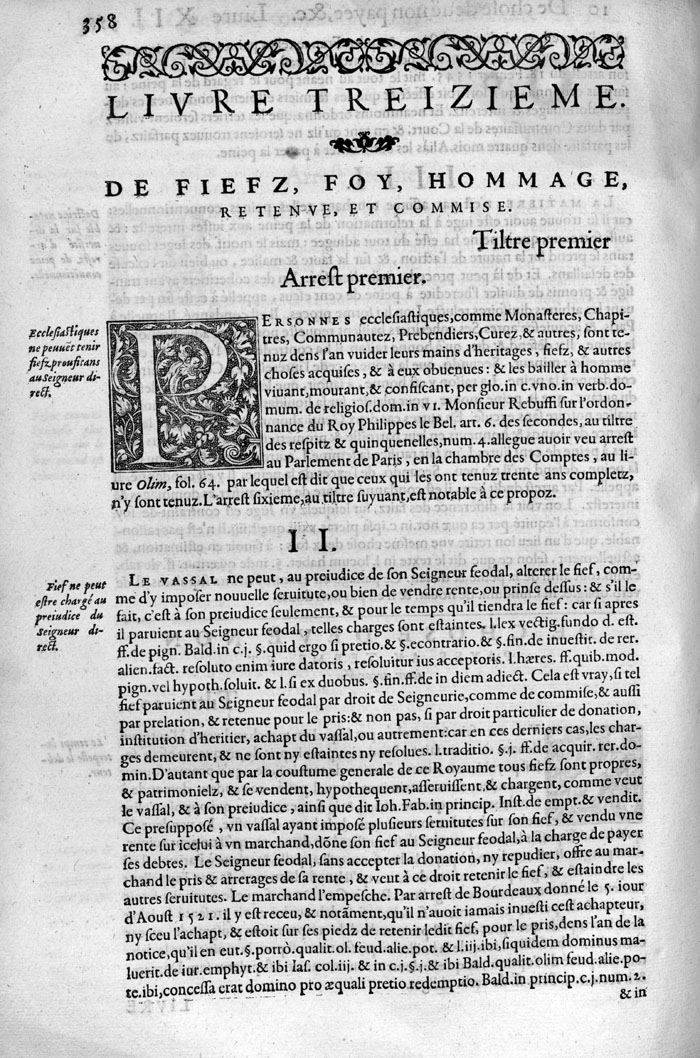 358
LIVRE TREIZIEME.
DE FIEFZ, FOY, HOMMAGE,
RETENVE, ET COMMISE.
Tiltre premier
Arrest premier.
Ecclesiastiques
ne peuuẽt tenir
fiefz, proufitans
au Seigneur di-
rect.
PERSONNES ecclesiastiques, comme Monasteres, Chapi-
tres, Communautez, Prebendiers, Curez, & autres, sont te-
nuz dens l'an vuider leurs mains d'heritages, fiefz, & autres
choses acquises, & à eux obuenues: & les bailler à homme
viuant, mourant, & confiscant, per glo. in c. vno. in verb. do-
mum. de religios. dom. in VI. Monsieur Rebuffi sur l'ordon-
nance du Roy Philippes le Bel. art. 6. des secondes, au tiltre
des respitz & quinquenelles, num. 4. allegue auoir veu arrest
au Parlement de Paris, en la chambre des Comptes, au li-
ure Olim, fol. 64. par lequel est dit que ceux qui les ont tenuz trente ans completz,
n'y sont tenuz. L'arrest sixieme, au tiltre suyuant, est notable à ce propoz.
II.
Fief ne peut
estre chargé au
preiudice du
Seigneur di-
rect.
LE VASSAL ne peut, au preiudice de son Seigneur feodal, alterer le fief, com-
me d'y imposer nouuelle seruitute, ou bien de vendre rente, ou prinse dessus: & s'il le
fait, c'est à son preiudice seulement, & pour le temps qu'il tiendra le fief: car si apres
il paruient au Seigneur feodal, telles charges sont estaintes. l. lex vectig. fundo d. est.
ff. de pign. Bald. in c. j. §. quid ergo si pretio. & §. econtrario. & §. fin. de inuestit. de rer.
alien. fact. resoluto enim iure datoris, resoluitur ius acceptoris. l. hæres. ff. quib. mod.
pign. vel hypoth. soluit. & l. si ex duobus. §. fin. ff. de in diem adiect. Cela est vray, si tel
fief paruient au Seigneur feodal par droit de Seigneurie, comme de commise, & aussi
par prelation, & retenue pour le pris: & non pas, si par droit particulier de donation,
institution d'heritier, achapt du vassal, ou autrement: car en ces derniers cas, les char-
ges demeurent, & ne sont ny estaintes ny resolues. l. traditio. §. j. ff. de acquir. rer. do-
min. D'autant que par la coustume generale de ce Royaume tous fiefz sont propres,
& patrimonielz, & se vendent, hypothequent, asseruissent, & chargent, comme veut
le vassal, & à son preiudice, ainsi que dit Ioh. Fab. in princip. Inst. de empt. & vendit.
Ce presupposé, vn vassal ayant imposé plusieurs seruitutes sur son fief, & vendu vne
rente sur icelui à vn marchand, dõne son fief au Seigneur feodal, à la charge de payer
ses debtes. Le Seigneur feodal, sans accepter la donation, ny repudier, offre au mar-
chand le pris & arrerages de sa rente, & veut à ce droit retenir le fief, & estaindre les
autres seruitutes. Le marchand l'empesche. Par arrest de Bourdeaux donné le 5. iour
d'Aoust 1521. il y est receu, & notãment, qu'il n'auoit iamais inuesti cest achapteur,
ny sceu l'achapt, & estoit sur ses piedz de retenir ledit fief, pour le pris, dens l'an de la
notice, qu'il en eut. §. porrò. qualit. ol. feud. alie. pot. & l. iij. ibi, siquidem dominus ma-
luerit. de iur. emphyt. & ibi Ias. col. iij. & in c. j. §. j. & ibi Bald. qualit. olim feud. alie. po-
te. ibi, concessa erat domino pro æquali pretio redemptio. Bald. in princip. c. j. num. 2.
& in